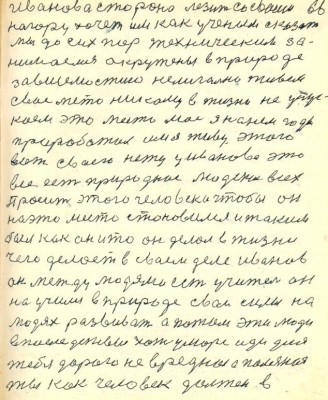 Иванова сторона лезит со своим вв
нагору хочет им как ученым сказат
мы до сих пор техническим за-
нимаемся окружены в природе
завистностию нелигални живем
свае место никому в жизни не упус-
каем это место мае я на нем годы
проработал имя живу этого
вот своего нету у Иванова это
все ест природнае людена всех
просит этого человека чтобы он
на это место становился и таким
был как он и то он делал в жизни
чего делает в своем деле Иванов
он между людями ест учител он
на учили в природе сваи силы на
людях развиват а потом эти люди
впоследствии хот у море иди для
тебя дорога не вредная а полезная
ты как человек должен в